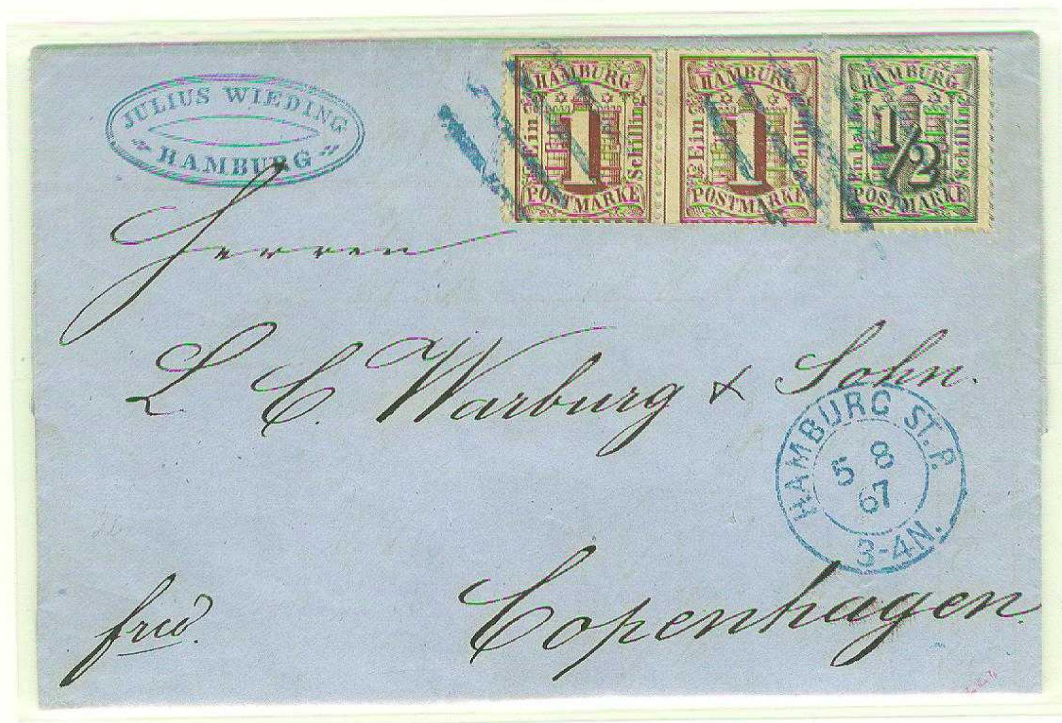 JULIUS WIEDING
HAMBURG
HAMBURG
Ein Schilling
1
POSTMARKE
HAMBURG
Ein Schilling
1
POSTMARKE
HAMBURG
Ein halber Schilling
1/2
POSTMARKE
Herren
L C. Warburg & Sohn.
HAMBURG ST. P.
5 8
67
3-4N.
frco.
Copenhagen.